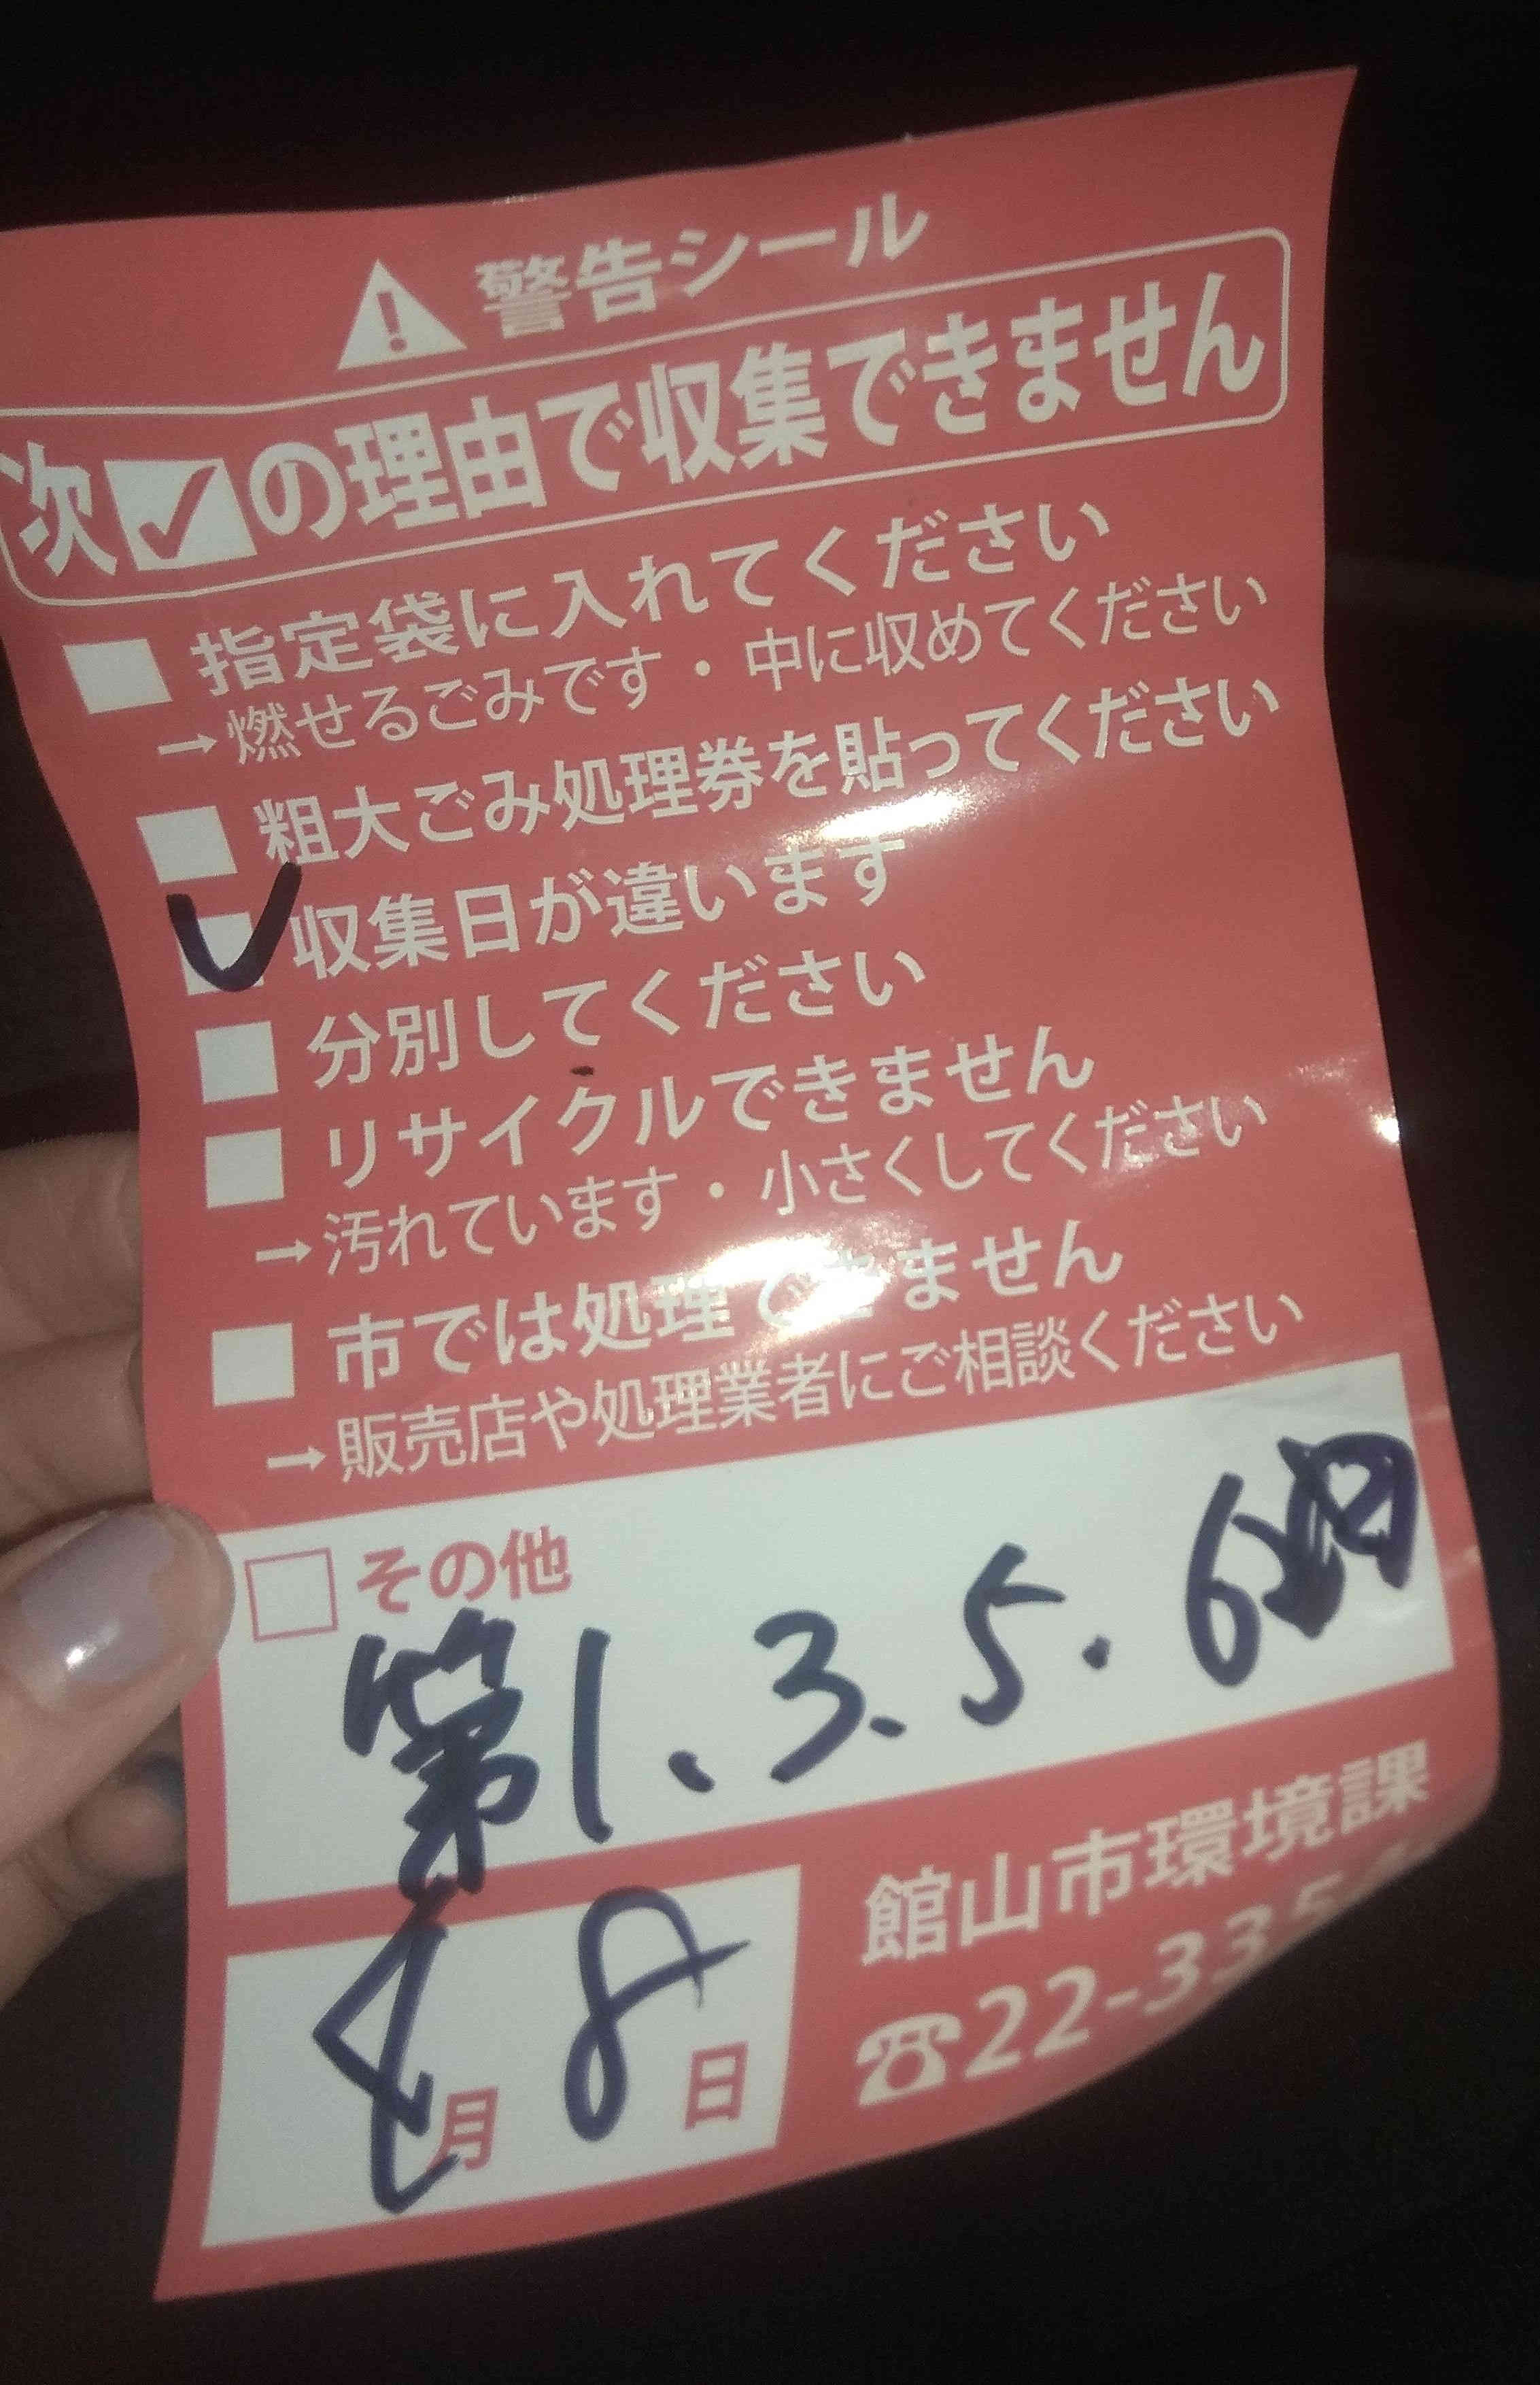 警告シール
次☑の理由で収集できません
指定袋に入れてください
→燃せるごみです・中に収めてください
粗大ごみ処理券を貼ってください
収集日が違います
分別してください
リサイクルできません
→汚れています・小さくしてください
市では処理できません
→販売店や処理業者にご相談ください
その他
第1.3.5.6
8月8日
館山市環境課
☎22-335